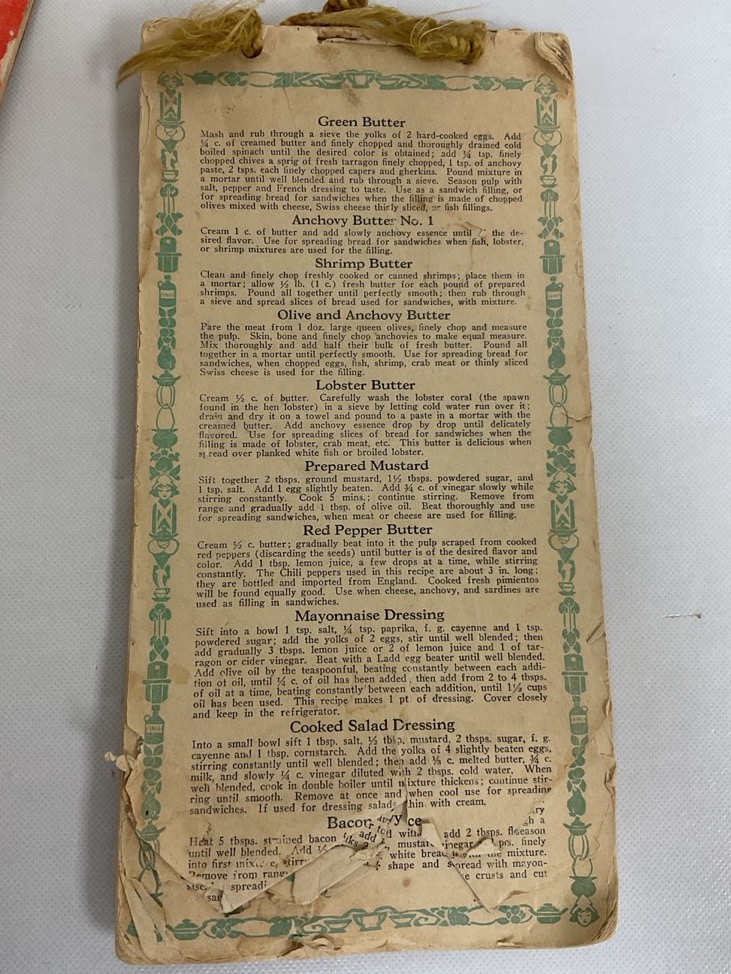 Green Butter
Mash and rub through a sieve the yolks of 2 hard-cooked eggs. Add
¼ c. of creamed butter and finely chopped and thoroughly drained cold
boiled spinach until the desired color is obtained; add ¼ tsp. finely
chopped chives a sprig of fresh tarragon finely chopped, 1 tsp. of anchovy
paste, 2 tsps. each finely chopped capers and gherkins. Pound mixture in
a mortar until well blended and rub through a sieve. Season pulp with
salt, pepper and French dressing to taste. Use as a sandwich filling, or
for spreading bread for sandwiches when the filling is made of chopped
olives mixed with cheese, Swiss cheese thinly sliced, or fish fillings.
Anchovy Butter No. 1
Cream 1 c. of butter and add slowly anchovy essence until the de-
sired flavor. Use for spreading bread for sandwiches when fish, lobster,
or shrimp mixtures are used for the filling.
Shrimp Butter
Clean and finely chop freshly cooked or canned shrimps; place them in
a mortar; allow ½ lb. (1 c.) fresh butter for each pound of prepared
shrimps. Pound all together until perfectly smooth; then rub through
a sieve and spread slices of bread used for sandwiches, with mixture.
Olive and Anchovy Butter
Pare the meat from 1 doz. large queen olives, finely chop and measure
the pulp. Skin, bone and finely chop anchovies to make equal measure.
Mix thoroughly and add half their bulk of fresh butter. Pound all
together in a mortar until perfectly smooth. Use for spreading bread for
sandwiches, when chopped eggs, fish, shrimp, crab meat or thinly sliced
Swiss cheese is used for the filling.
Lobster Butter
Cream ½ c. of butter. Carefully wash the lobster coral (the spawn
found in the hen lobster) in a sieve by letting cold water run over it;
drain and dry it on a towel and pound to a paste in a mortar with the
creamed butter. Add anchovy essence drop by drop until delicately
flavored. Use for spreading slices of bread for sandwiches when the
filling is made of lobster, crab meat, etc. This butter is delicious when
spread over planked white fish or broiled lobster.
Prepared Mustard
Sift together 2 tbsps. ground mustard, 1½ tbsps. powdered sugar, and
1 tsp. salt. Add 1 egg slightly beaten. Add ¾ c. of vinegar slowly while
stirring constantly. Cook 5 mins.; continue stirring. Remove from
range and gradually add 1 tbsp. of olive oil. Beat thoroughly and use
for spreading sandwiches, when meat or cheese are used for filling.
Red Pepper Butter
Cream ½ c. butter; gradually beat into it the pulp scraped from cooked
red peppers (discarding the seeds) until butter is of the desired flavor and
color. Add 1 tbsp. lemon juice, a few drops at a time, while stirring
constantly. The Chili peppers used in this recipe are about 3 in. long;
they are bottled and imported from England. Cooked fresh pimientos
will be found equally good. Use when cheese, anchovy, and sardines are
used as filling in sandwiches.
Mayonnaise Dressing
Sift into a bowl 1 tsp. salt, ¼ tsp. paprika, f. g. cayenne and 1 tsp.
powdered sugar; add the yolks of 2 eggs, stir until well blended; then
add gradually 3 tbsps. lemon juice or 2 of lemon juice and 1 of tar-
ragon or cider vinegar. Beat with a Ladd egg beater until well blended.
Add olive oil by the teaspoonful, beating constantly between each addi-
tion of oil, until ¼ c. of oil has been added, then add from 2 to 4 tbsps.
of oil at a time, beating constantly between each addition, until 1½ cups
oil has been used. This recipe makes 1 pt of dressing. Cover closely
and keep in the refrigerator.
Cooked Salad Dressing
Into a small bowl sift 1 tbsp. salt, ½ tbsp. mustard, 2 tbsps. sugar, f. g.
cayenne and 1 tbsp. cornstarch. Add the yolks of 4 slightly beaten eggs,
stirring constantly until well blended; then add ⅓ c. melted butter, ¾ c.
milk, and slowly ¼ c. vinegar diluted with 2 tbsps. cold water. When
well blended, cook in double boiler until mixture thickens; continue stir-
ring until smooth. Remove at once and when cool use for spreading
sandwiches. If used for dressing salads thin with cream.
Bacon
Heat 5 tbsps. strained bacon add 2 tbsps.
until well blended. Add vinegar finely
into first white bread mixture.
Remove from shape and spread with mayon-
crusts and cut